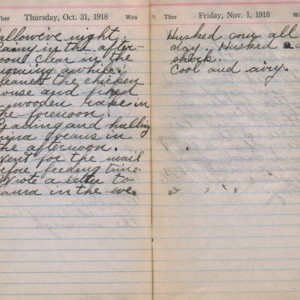 Thursday, Oct. 31, 1918 Wea
allowe'en night.
Rainy in the after-
noon clear in the
morning awhile.
leaned the chicken
house and fixed
wooden rake in
the forenoon.
and
in
the afternoon.
Went for the mail
before feeding time.
Wrote a letter to
in the eve.
Ther Friday, Nov. 1, 1918 Wea
Husked corn all
day. Husked a
shock.
Cool and airy.
Ther